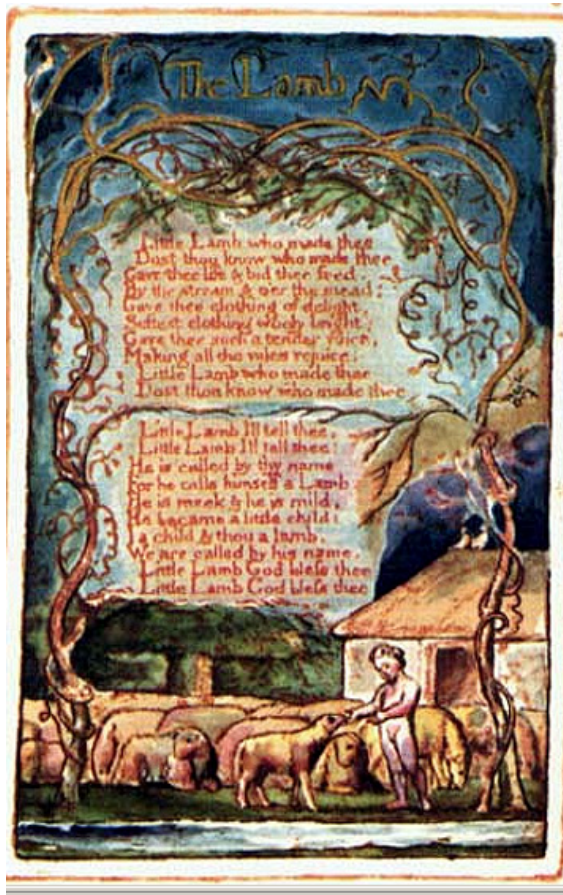 The Lamb
Little Lamb who made thee
Dost thou know who made thee
Gave thee life & bid thee feed.
By the stream & o'er the mead;
Gave thee clothing of delight,
Softest clothing wooly bright;
Gave thee such a tender voice,
Making all the vales rejoice:
Little Lamb who made thee
Dost thou know who made thee
Little Lamb I'll tell thee,
Little Lamb I'll tell thee:
He is called by thy name,
For he calls himself a Lamb:
He is meek & he is mild,
He became a little child:
I a child & thou a lamb,
We are called by his name.
Little Lamb God bless thee
Little Lamb God bless thee